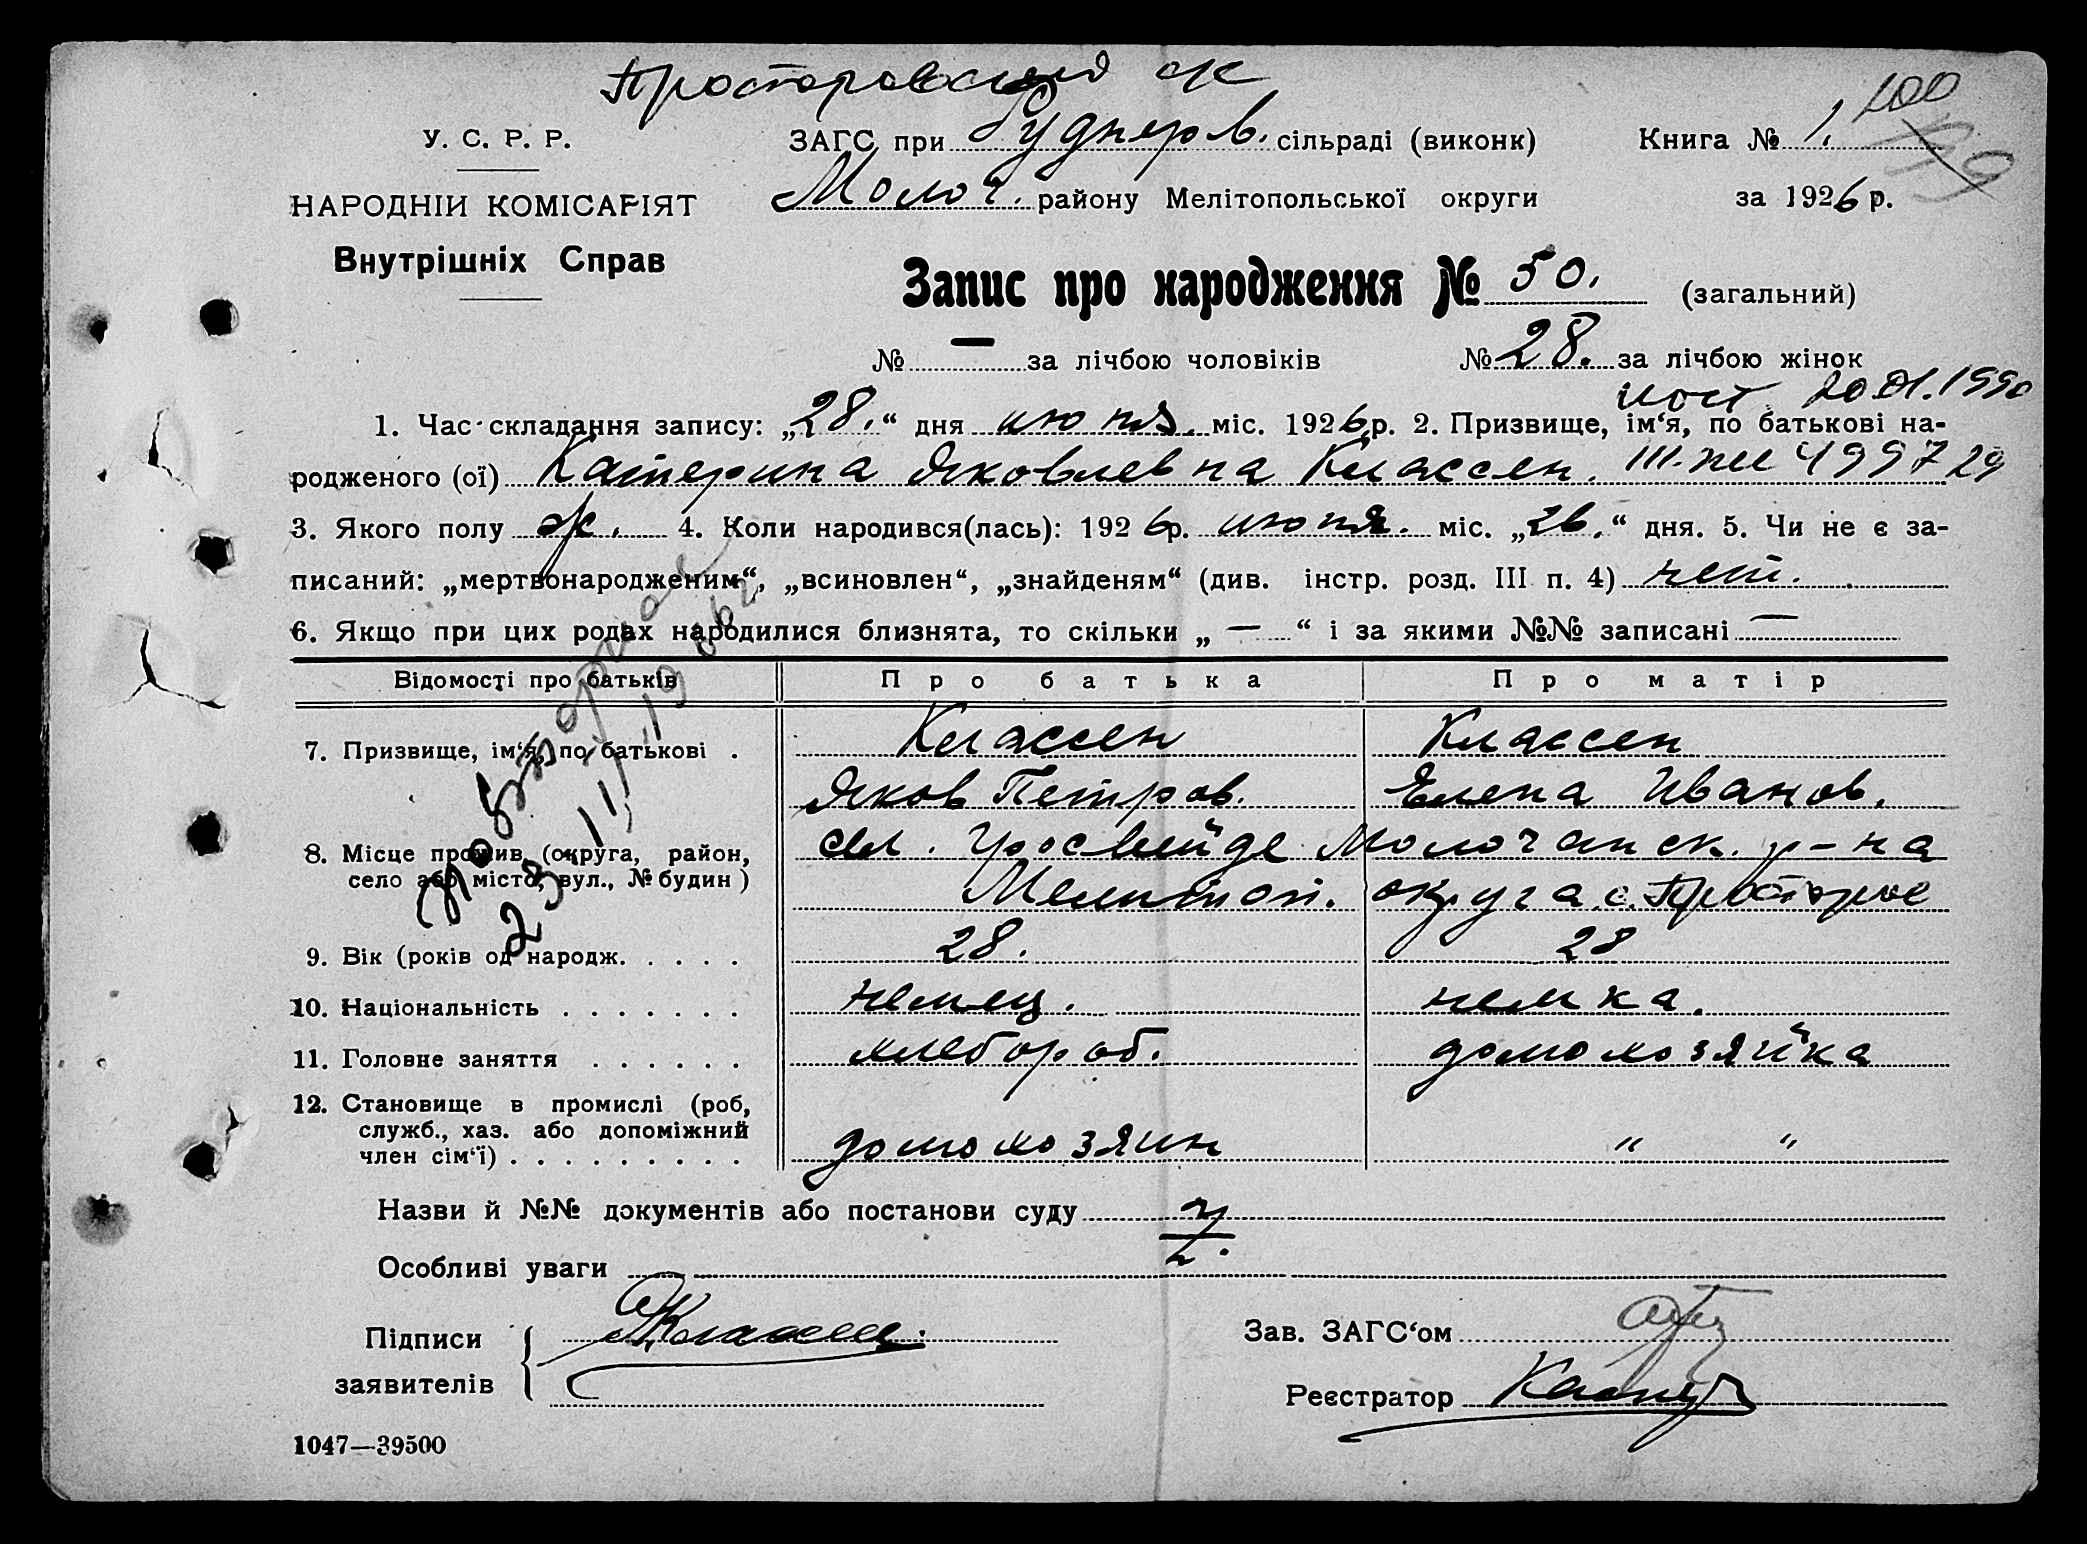 Просторовский с/с
У. С. Р. Р.
ЗАГС при Руднеров. сільраді (виконк)
Книга № 1. 100
НАРОДНІЙ КОМІСАРІЯТ
Молоч. району Мелітопольської округи
за 1926 р.
Внутрішніх Справ
Запис про народження № 50. (загальний)
№ — за лічбою чоловіків № 28. за лічбою жінок
20.01.1990
1. Час складання запису: „28.“ дня июня. міс. 1926 р. 2. Призвище, ім‘я, по батькові на-
родженого (ої) Катерина Яковлевна Классен.
3. Якого полу ж. 4. Коли народився(лась): 1926 р. июня. міс. „26.“ дня. 5. Чи не є за-
писаний: „мертвонародженим“, „всиновлен“, „знайденям“ (див. інстр. розд. III п. 4) нет.
6. Якщо при цих родах народилися близнята, то скільки „ — “ і за якими №№ записані —
Відомості про батьків Про батька Про матір
7. Призвище, ім‘я, по батькові . Классен Классен
Яков Петров. Елена Иванов.
8. Місце прожив. (округа, район, сел. Гросвейде Молочанск. р-на
село або місто, вул., № будин) Мелитоп. округа с. Просторое
9. Вік (років од народж. . . . . 28. 28
10. Національність . . . . . . . немец. немка.
11. Головне заняття . . . . . . хлебороб. домохозяйка
12. Становище в промислі (роб,
служб., хаз. або допоміжний
член сім‘ї) . . . . . . . . . домохозяин " "
Назви й №№ документів або постанови суду
Особливі уваги
Підписи
Зав. ЗАГС‘ом
заявителів
Реєстратор
1047—39500